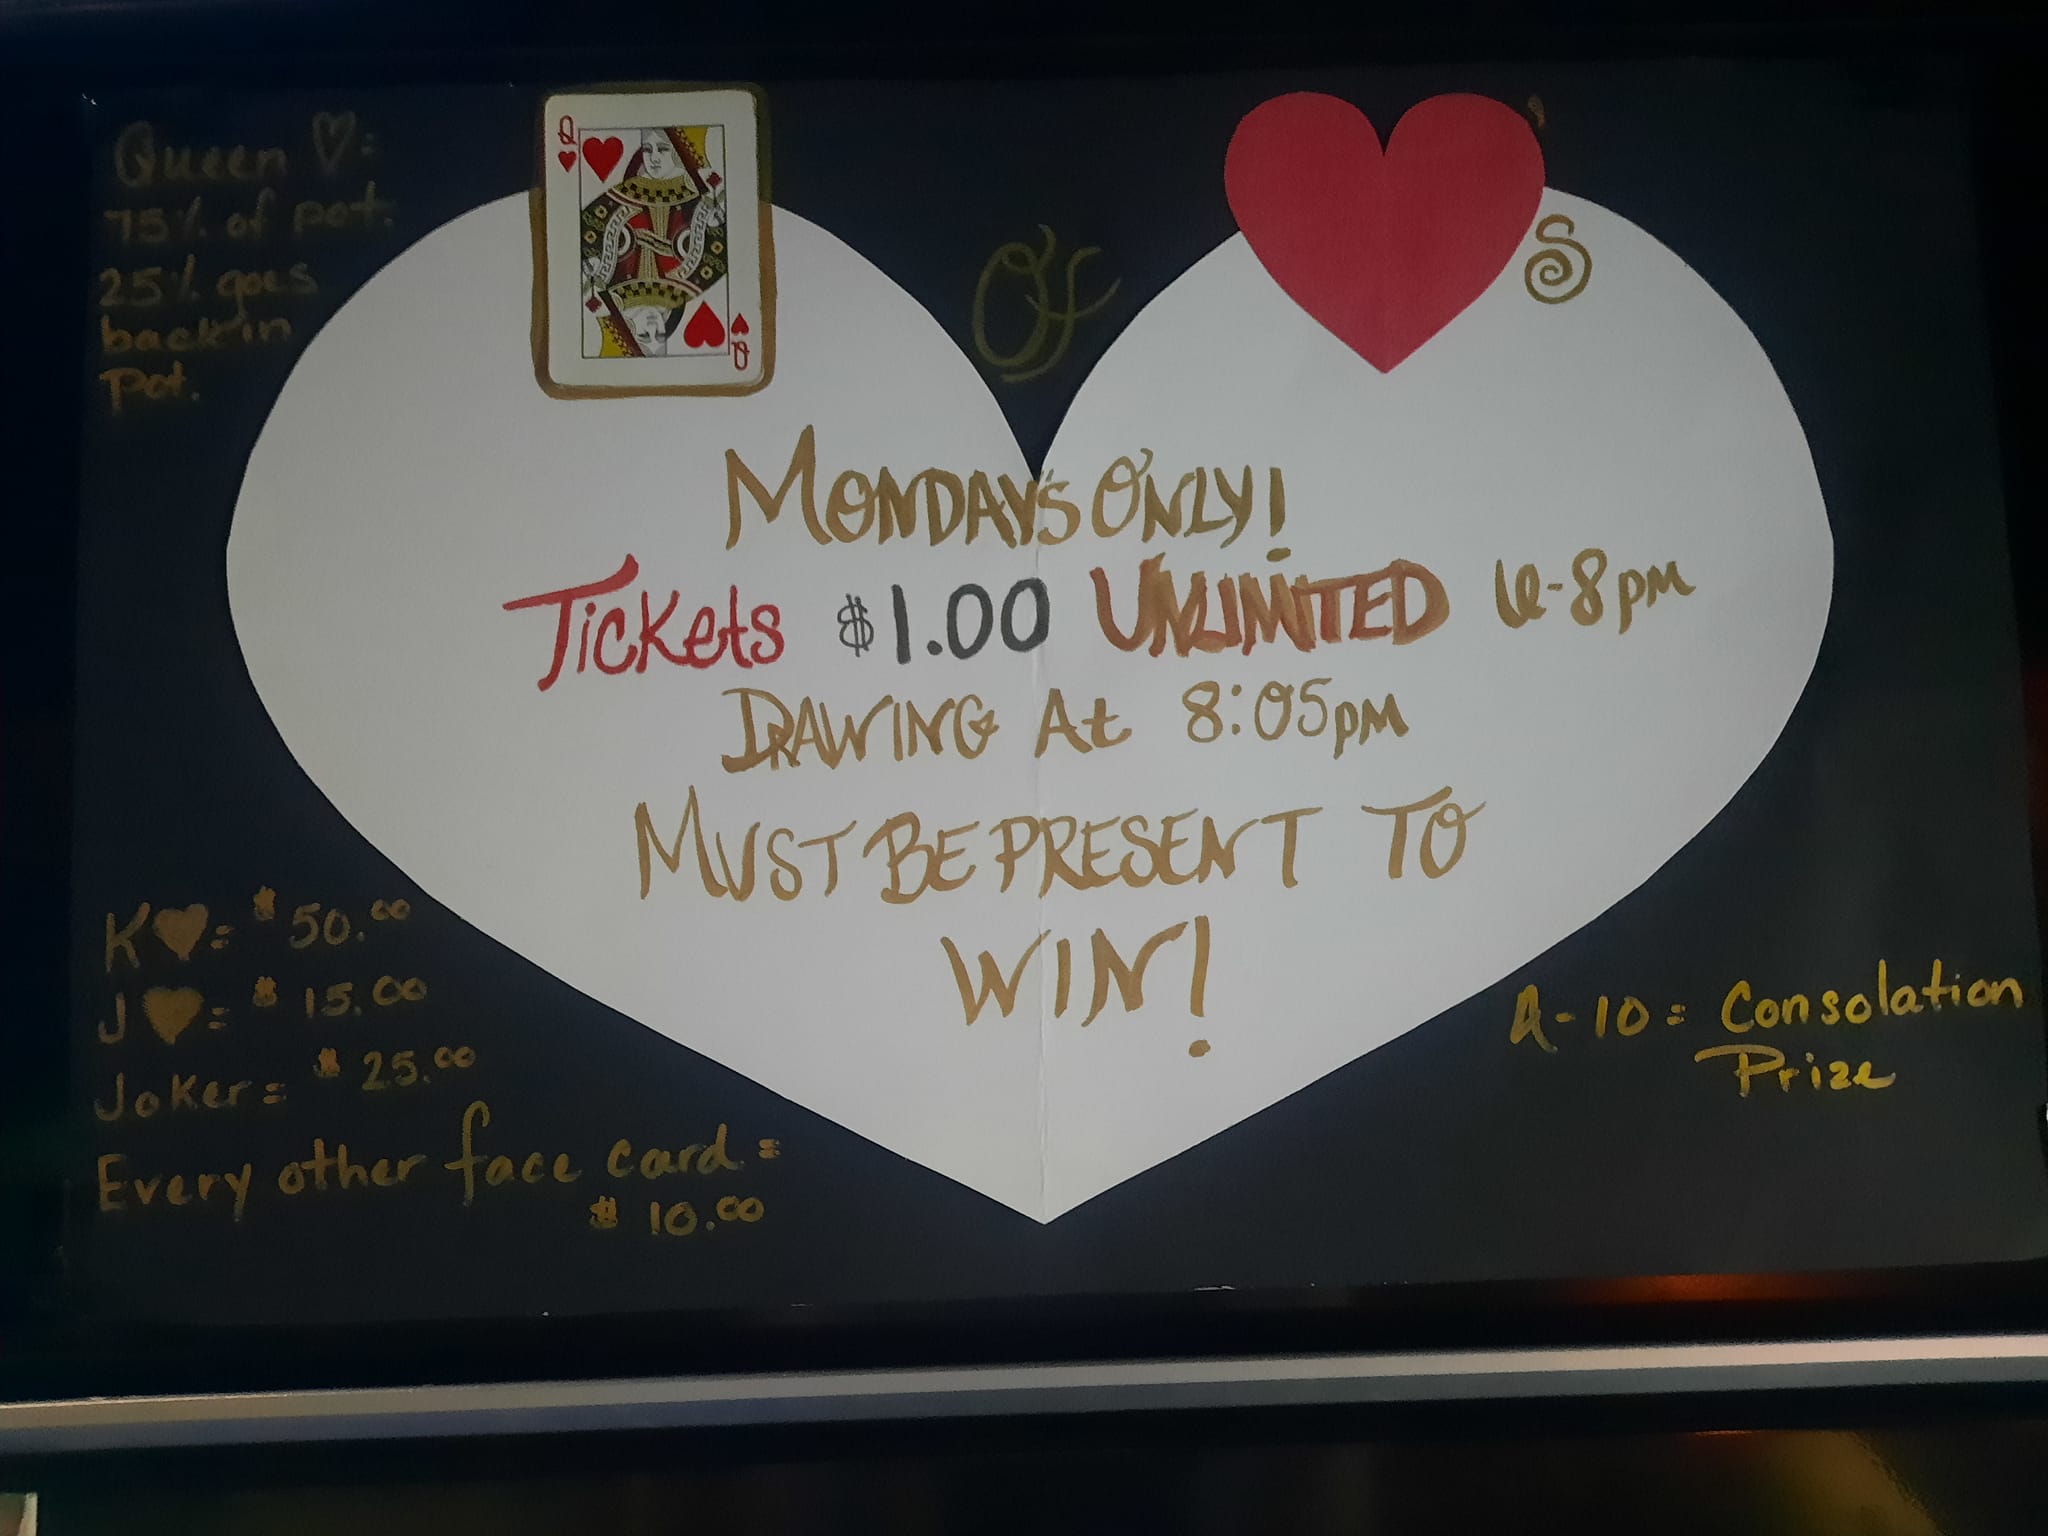 Queen ♡:
75% of pot.
25% goes
back in
Pot.
Q
Q
Of
S
MONDAYS ONLY!
TICKETS $1.00 UNLIMITED 6-8PM
DRAWING AT 8:05PM
MUST BE PRESENT TO
WIN!
K♥= $50.00
J♥= $15.00
Joker= $25.00
Every other face card =
$10.00
A-10 = Consolation
Prize